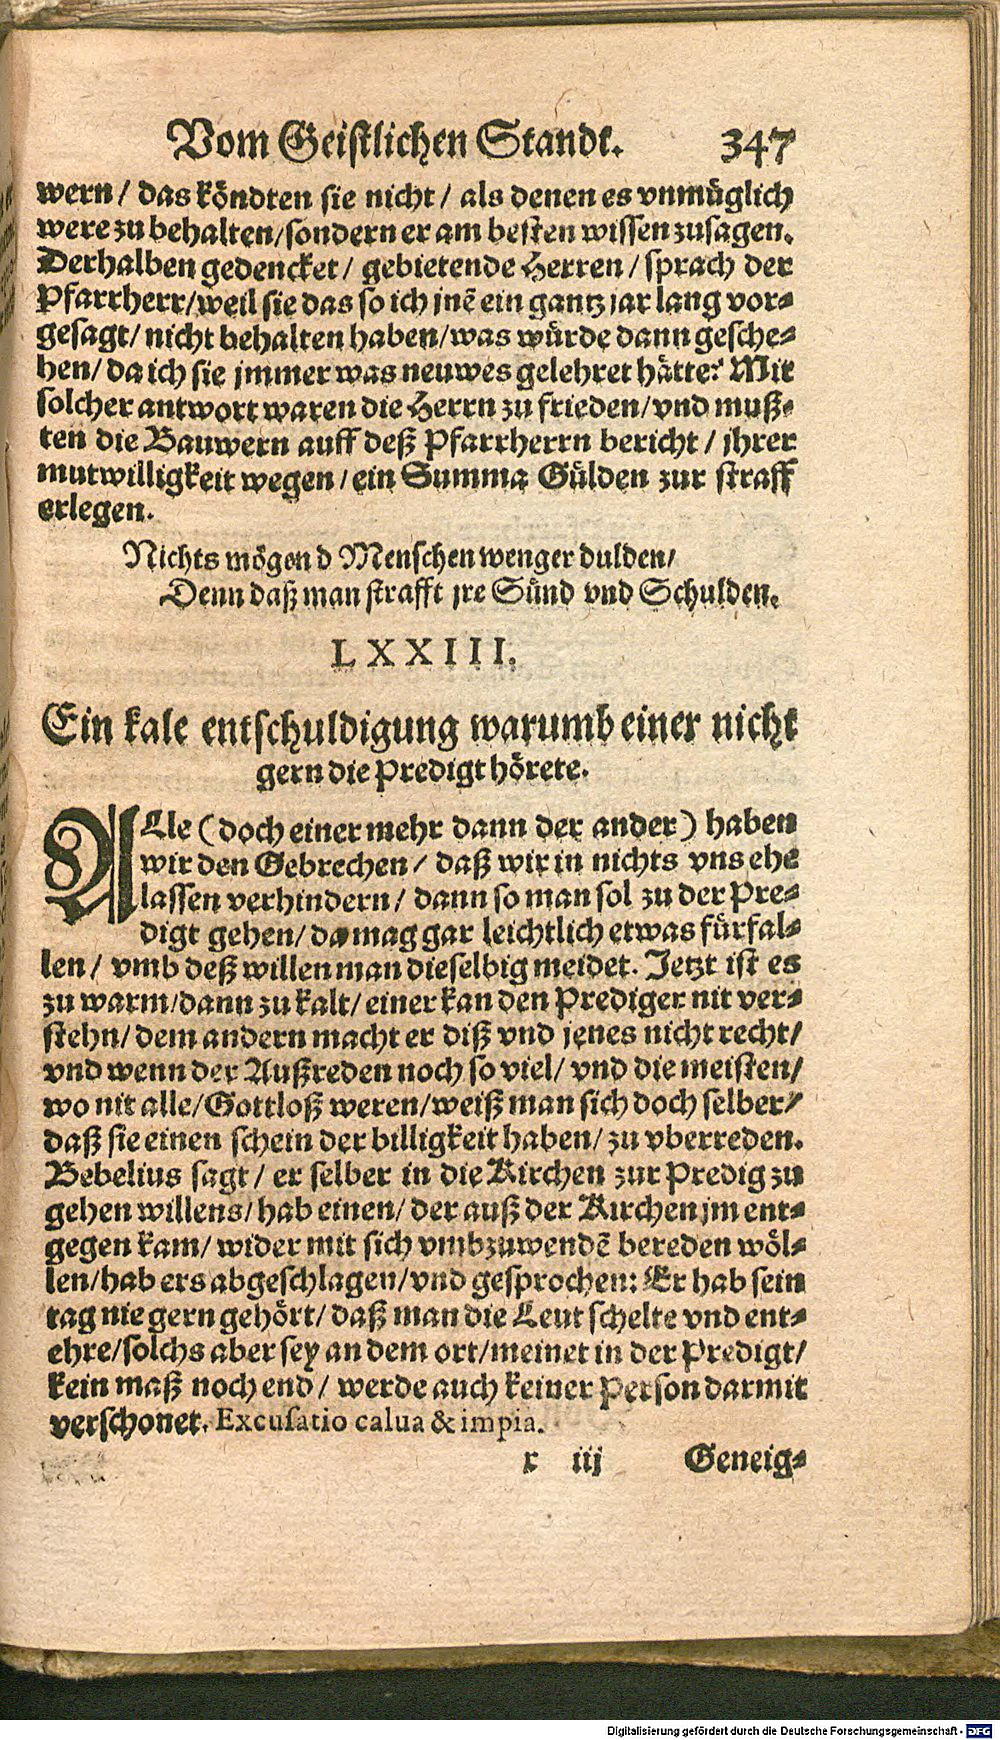 Vom Geistlichen Standt. 347
wern / das köndten sie nicht / als denen es vnmüglich
were zu behalten/sondern er am besten wissen zusagen.
Derhalben gedencket / gebietende Herren / sprach der
Pfarrherr/weil sie das so ich jnẽ ein gantz jar lang vor-
gesagt/ nicht behalten haben/was würde dann gesche-
hen/ da ich sie jmmer was neuwes gelehret hätte? Mit
solcher antwort waren die Herrn zu frieden/vnd muß-
ten die Bauwern auff deß Pfarrherrn bericht / jhrer
mutwilligkeit wegen / ein Summa Gülden zur straff
erlegen.
Nichts mögen d Menschen wenger dulden/
Denn daß man strafft jre Sünd vnd Schulden.
LXXIII.
Ein kale entschuldigung warumb einer nicht
gern die Predigt hörete.
ALle (doch einer mehr dann der ander) haben
wir den Gebrechen / daß wir in nichts vns ehe
lassen verhindern / dann so man sol zu der Pre-
digt gehen/ da mag gar leichtlich etwas fürfal-
len / vmb deß willen man dieselbig meidet. Jetzt ist es
zu warm/dann zu kalt/ einer kan den Prediger nit ver-
stehn/ dem andern macht er diß vnd jenes nicht recht/
vnd wenn der Außreden noch so viel/ vnd die meisten/
wo nit alle/Gottloß weren/weiß man sich doch selber/
daß sie einen schein der billigkeit haben/ zu vberreden.
Bebelius sagt / er selber in die Kirchen zur Predig zu
gehen willens/hab einen/ der auß der Kirchen jm ent-
gegen kam/ wider mit sich vmbzuwendẽ bereden wöl-
len/hab ers abgeschlagen/vnd gesprochen: Er hab sein
tag nie gern gehört/ daß man die Leut schelte vnd ent-
ehre/solchs aber sey an dem ort/meinet in der Predigt/
kein maß noch end / werde auch keiner Person darmit
verschonet. Excusatio calua & impia.
x iij Geneig-
Digitalisierung gefördert durch die Deutsche Forschungsgemeinschaft - DFG